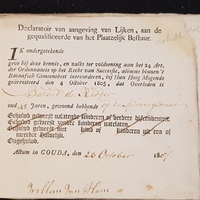 Declaratoir van aangeving van Lijken, aan de
gequalificeerde van het Plaatzelijk Bestuur.
IK ondergetekende
geen bij deze kennis, en zulks ter voldoening aan het 24 Art.
der Ordonnantie op het Regte van Successie, alömme binnen 't
Bataafsch Gemeenebest intevorderen, bij Hun Hoog Mogende
gearresteerd den 4 October 1805, dat Overleden is
de Ridder
oud 45 Jaren, gewoond hebbende op de
Gehuwd geweest nalatende kinderen of verdere descendenten.
Gehuwd geweest zonder kinderen natelaten.
Gehuwd geweest met kind of kinderen uit een of
Ongehuwd.
Aldum in GOUDA, den 26 October 1807
Willem van Ham